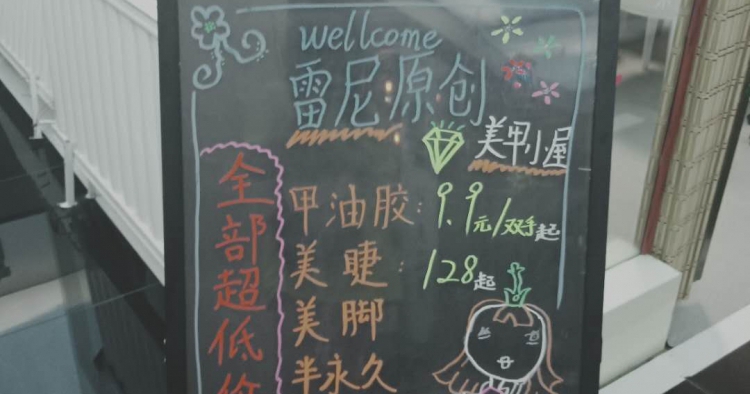 wellcome
雷尼原创
美甲小屋
全部超低价
甲油胶：9.9元/双手起
美睫：128起
美脚
半永久